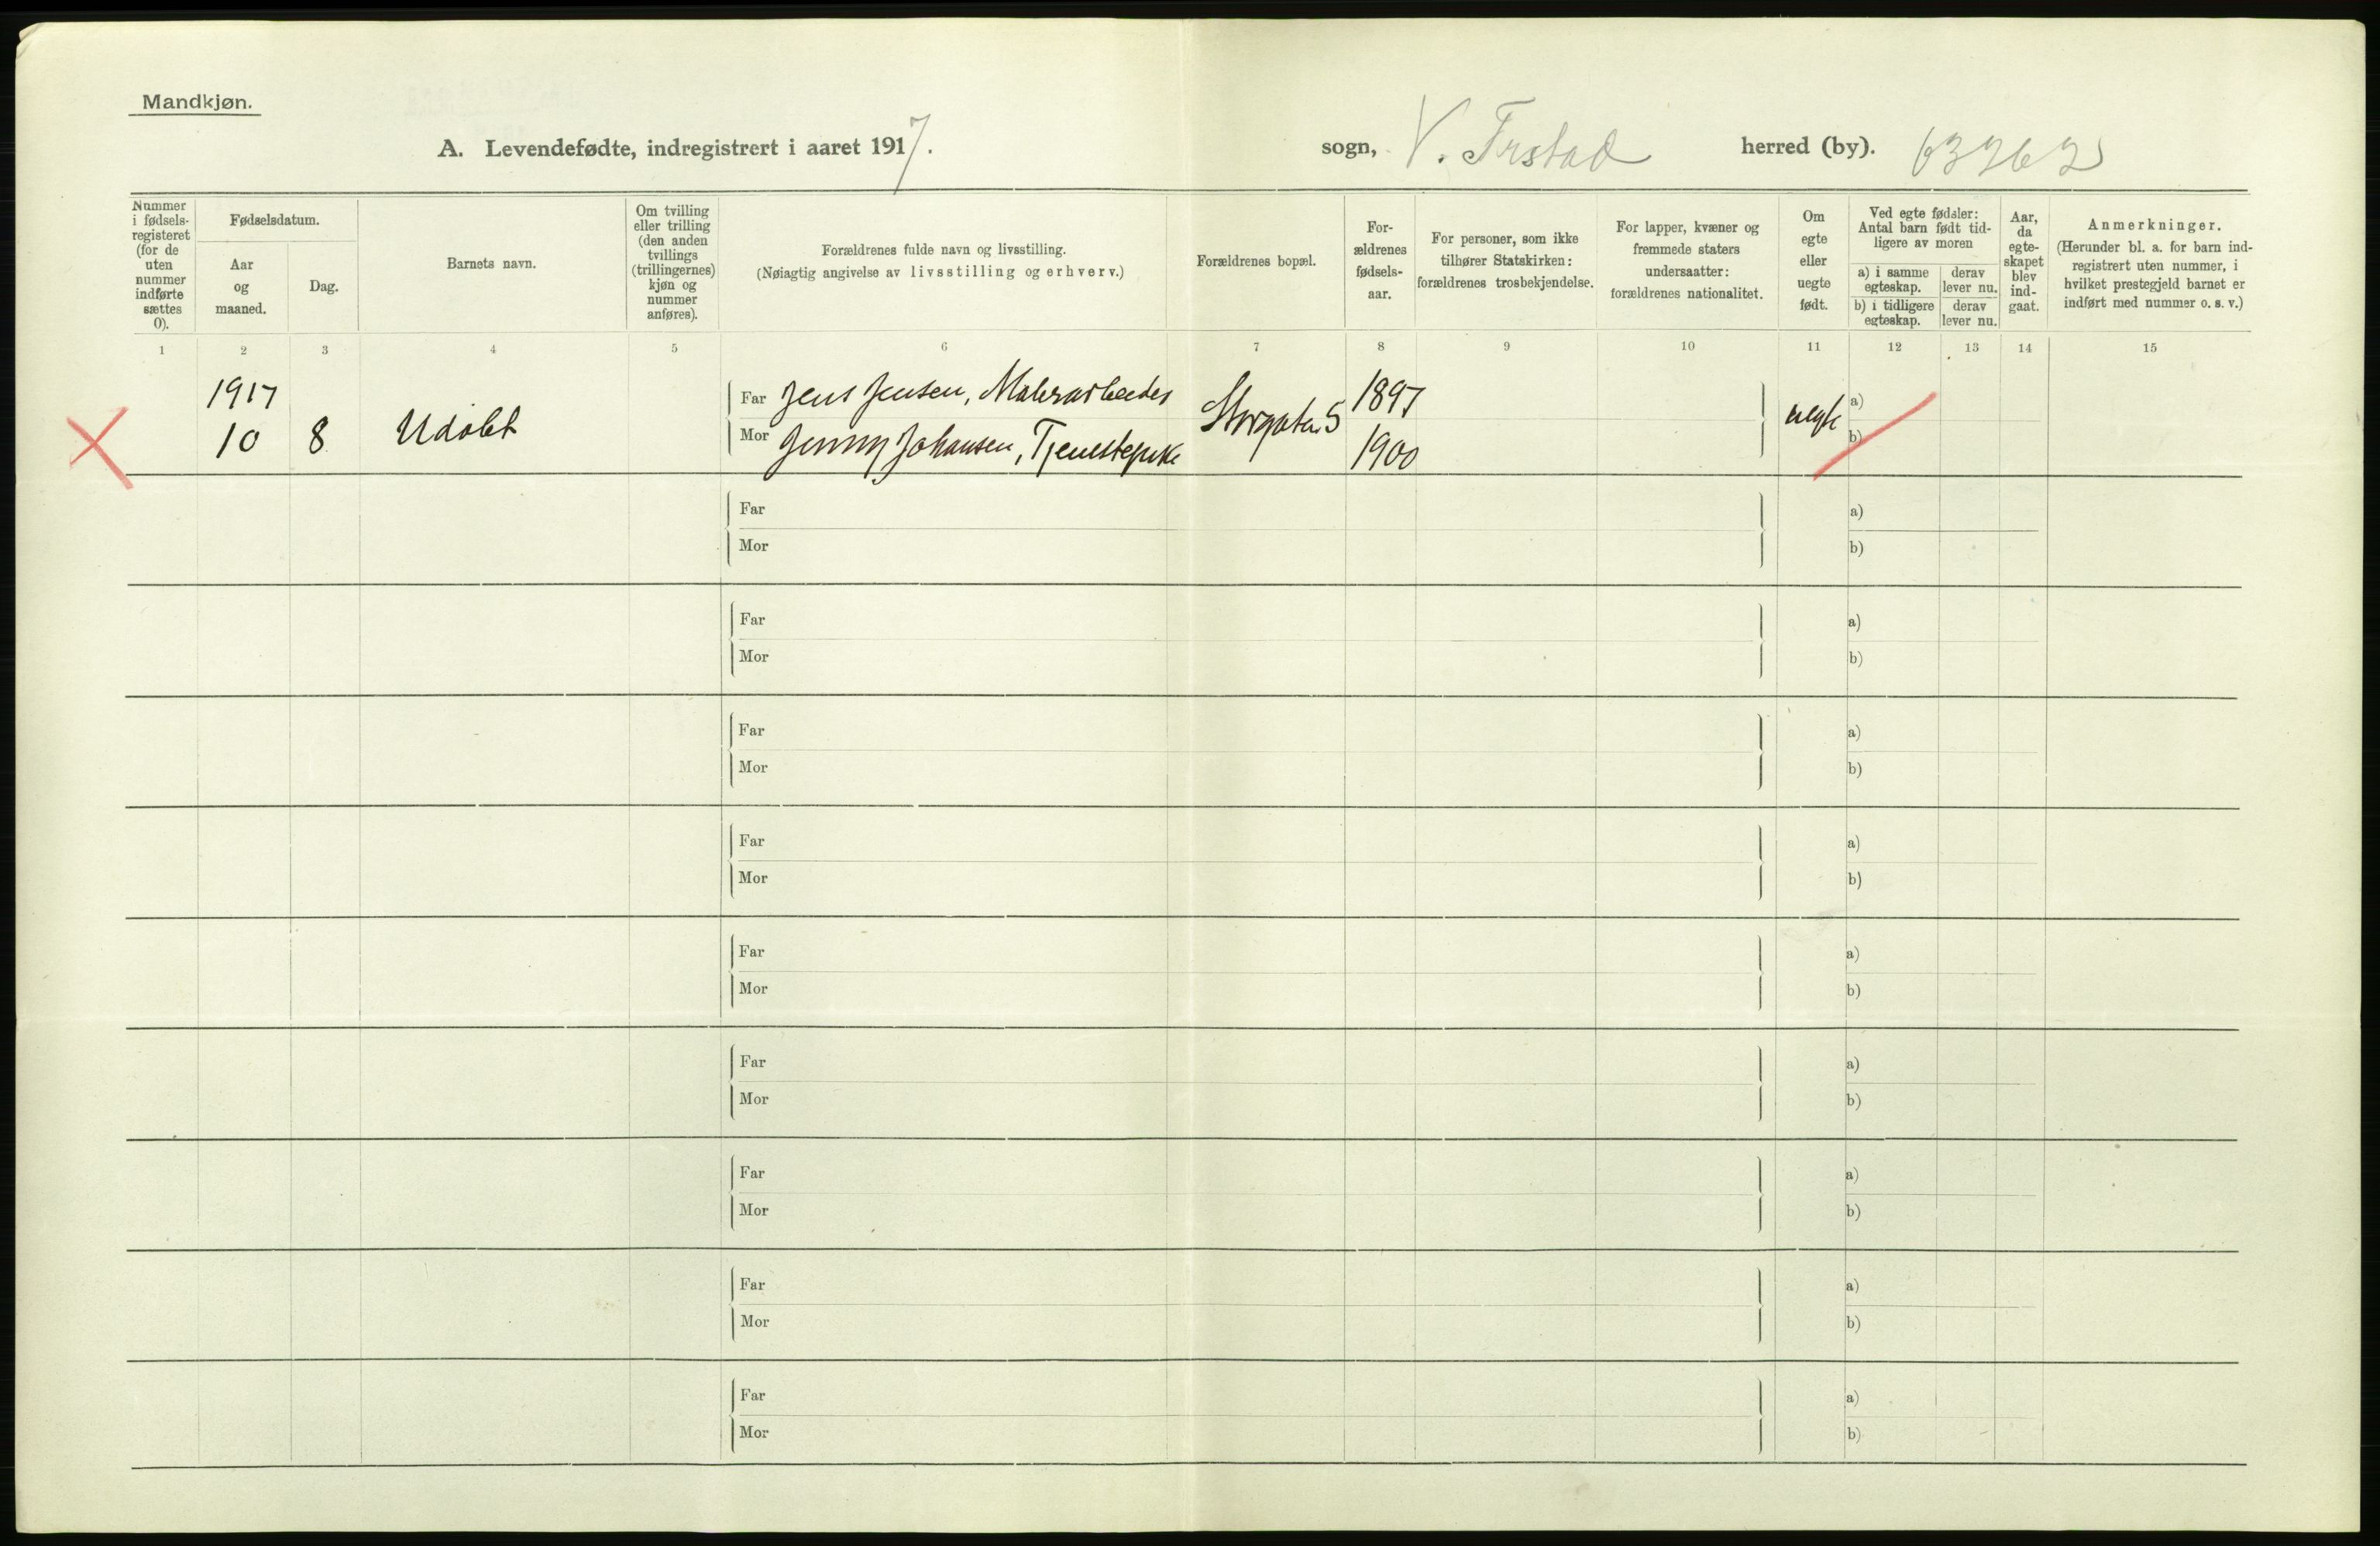 Mandkjøn.
A. Levendefødte, indregistrert i aaret 1917.
sogn, V. Frstad herred (by).
Nummer i fødsels-registeret (for de uten nummer indførte sættes 0).
Fødselsdatum.
Aar og maaned.
Dag.
Barnets navn.
Om tvilling eller trilling (den anden tvillings (trillingernes) kjøn og nummer anføres).
Forældrenes fulde navn og livsstilling.
(Nøiagtig angivelse av livsstilling og erhverv.)
Forældrenes bopæl.
For-ældrenes fødsels-aar.
For personer, som ikke tilhører Statskirken: forældrenes trosbekjendelse.
For lapper, kvæner og fremmede staters undersaatter: forældrenes nationalitet.
Om egte eller uegte født.
Ved egte fødsler: Antal barn født tid-ligere av moren
a) i samme egteskap.
derav lever nu.
b) i tidligere egteskap.
derav lever nu.
Aar, da egte-skapet blev ind-gaat.
Anmerkninger.
(Herunder bl. a. for barn ind-registrert uten nummer, i hvilket prestegjeld barnet er indført med nummer o. s. v.)
1 2 3 4 5 6 7 8 9 10 11 12 13 14 15
1917
10 8 Udøbt
Far Jens Jensen, Malerarbeider
Mor Jenny Johansen, Tjenestepike
Storgaten 5
1897
1900
uegte
a)
b)
Far a)
Mor b)
Far a)
Mor b)
Far a)
Mor b)
Far a)
Mor b)
Far a)
Mor b)
Far a)
Mor b)
Far a)
Mor b)
Far a)
Mor b)
Far a)
Mor b)